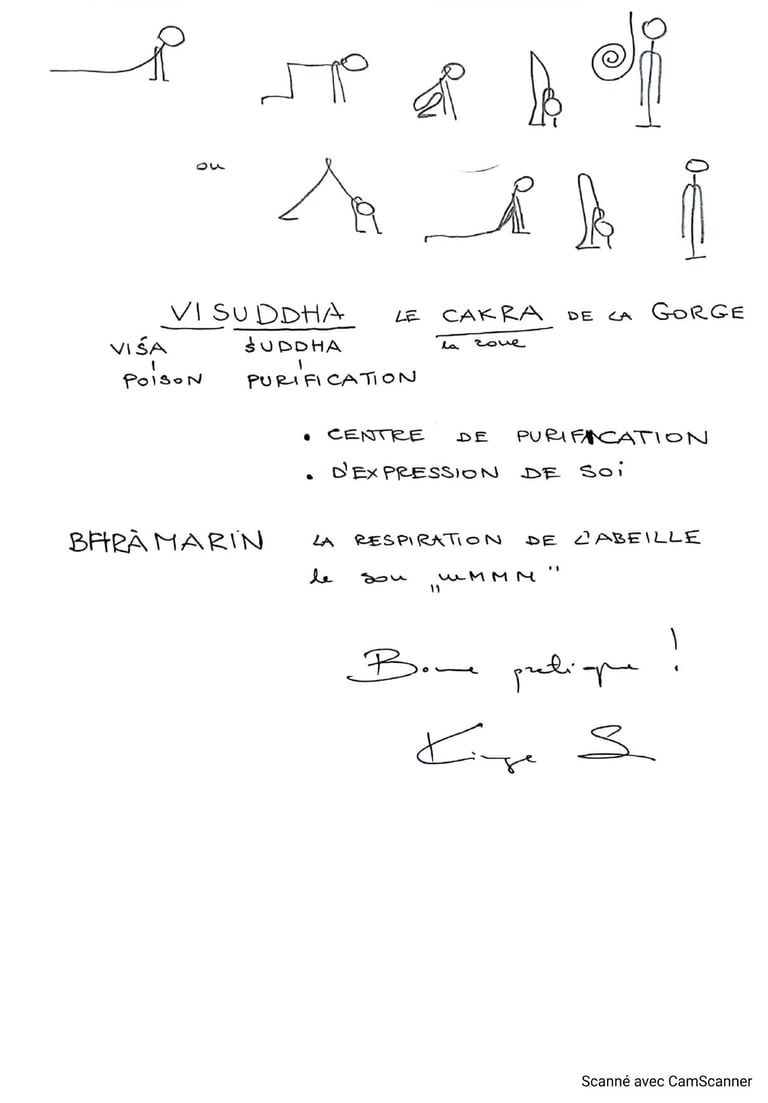 ou
VISUDDHA LE CAKRA DE LA GORGE
VIŚA ŚUDDHA la roue
POISON PURIFICATION
• CENTRE DE PURIFICATION
• D'EXPRESSION DE SOI
BHRÀMARIN LA RESPIRATION DE L'ABEILLE
le son „mMMM"
Bonne pratique !
S
Scanné avec CamScanner